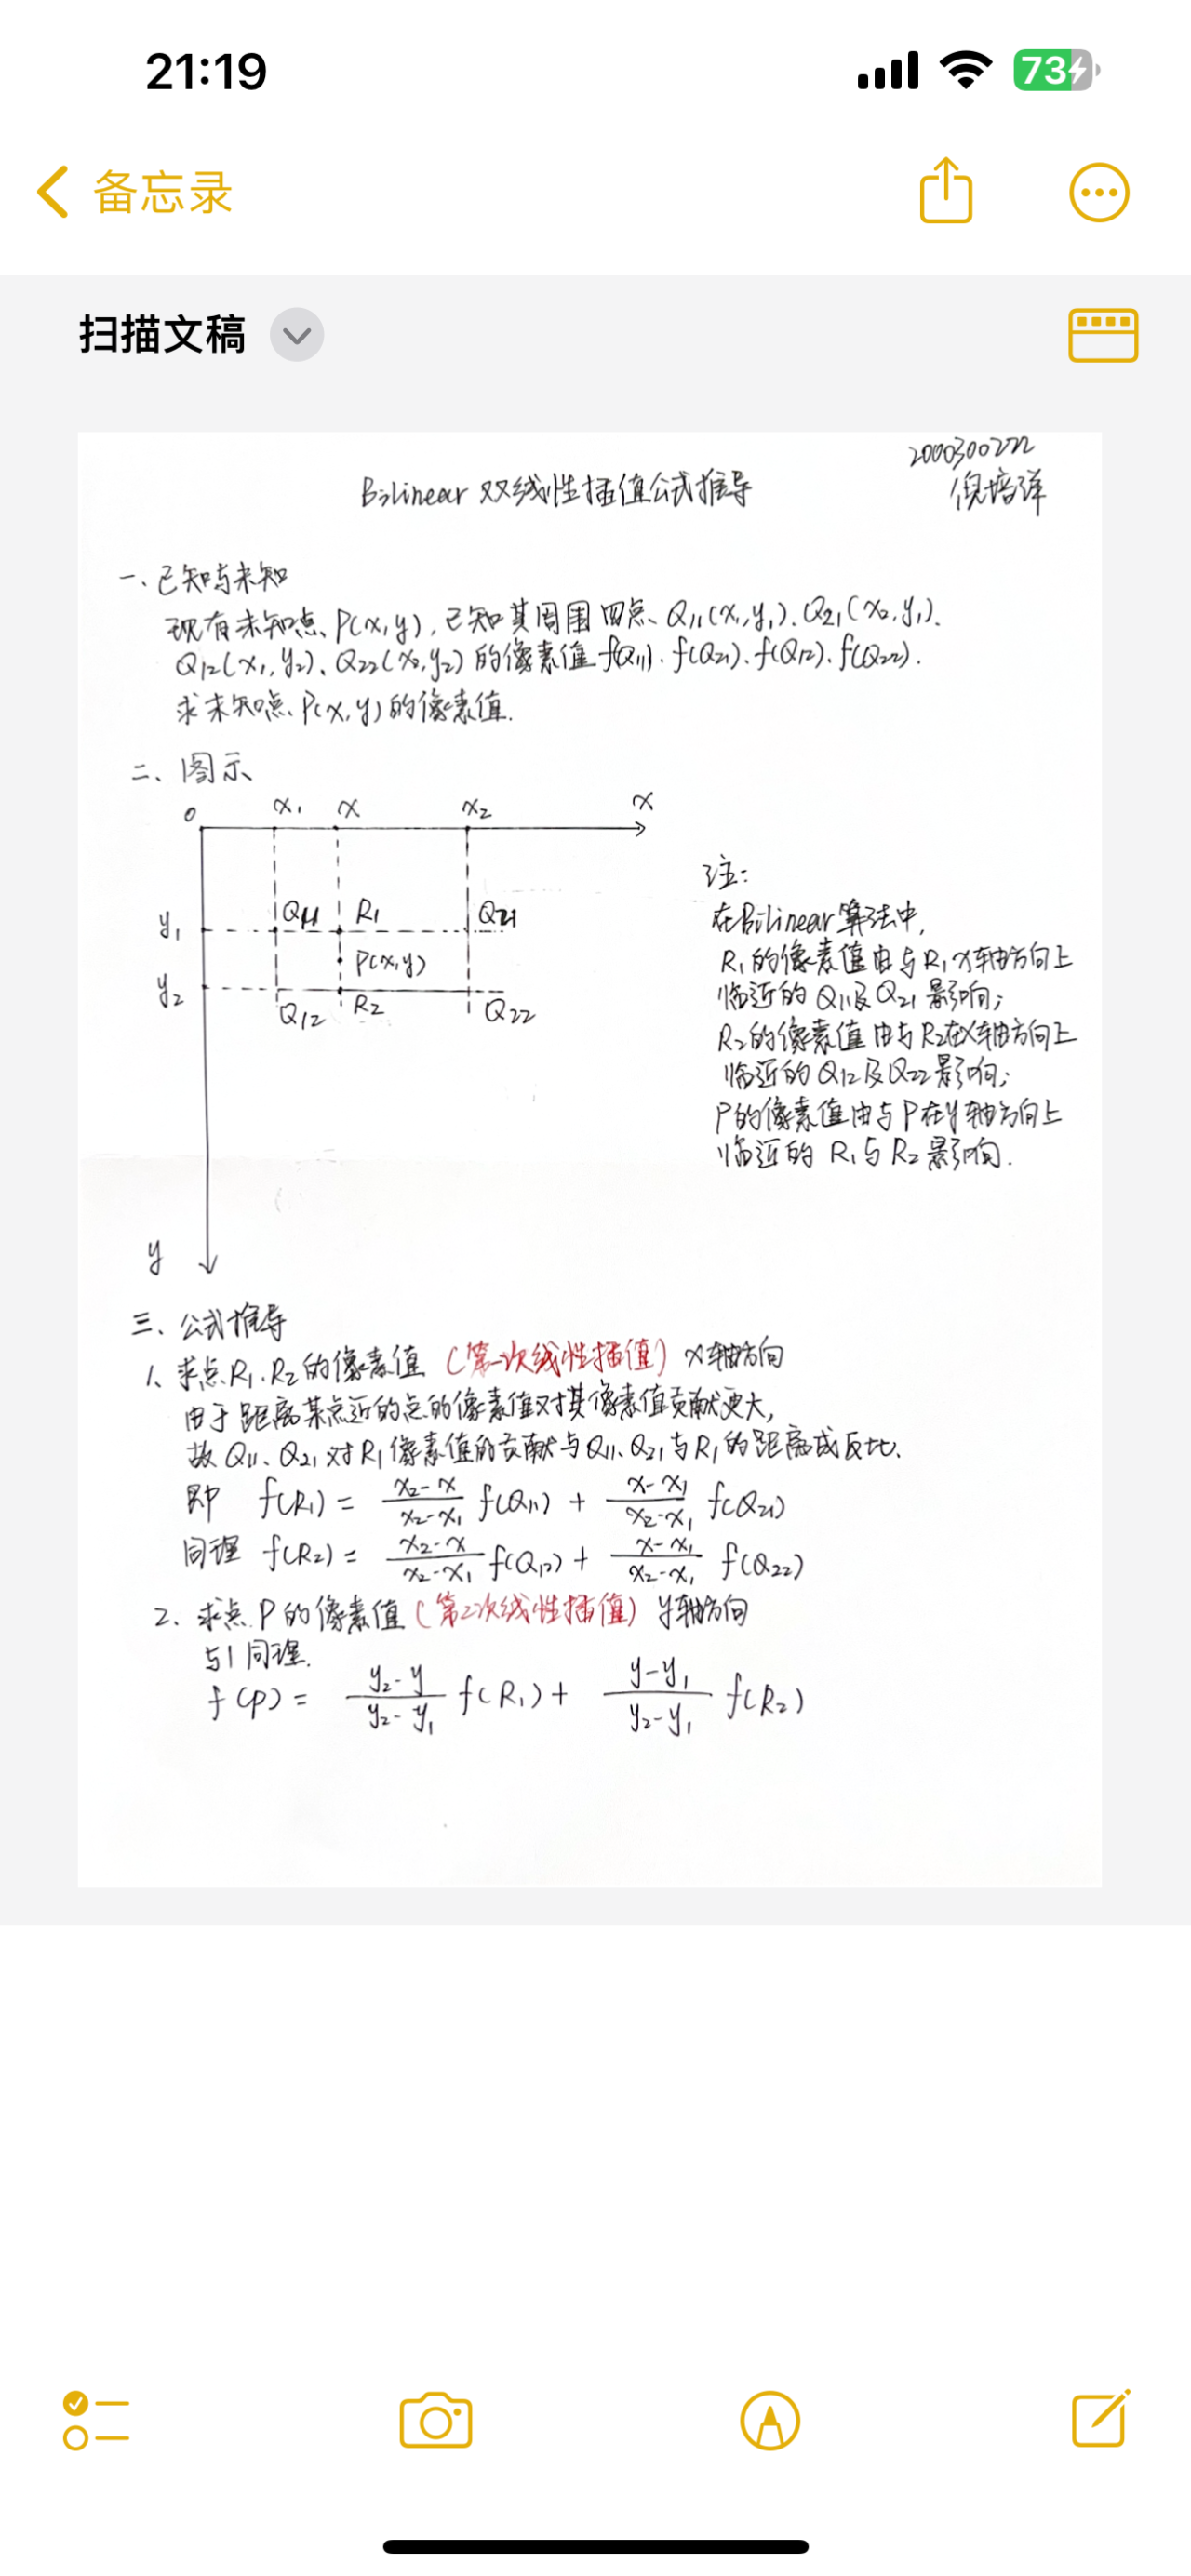 21:19
73
备忘录
扫描文稿
2000300222
倪培洋
Bilinear 双线性插值公式推导
一、已知与未知
现有未知点、P(x,y),已知其周围四点、Q11(x1,y1)、Q21(x2,y1)、
Q12(x1,y2)、Q22(x2,y2)的像素值f(Q11)、f(Q21)、f(Q12)、f(Q22).
求未知点、P(x,y)的像素值.
二、图示
0 x1 x x2 x
y1 Q11 R1 Q21
P(x,y)
y2 Q12 R2 Q22
y
注:
在Bilinear算法中,
R1的像素值由与R1x轴方向上
临近的Q11及Q21影响;
R2的像素值由与R2在x轴方向上
临近的Q12及Q22影响;
P的像素值由与P在y轴方向上
临近的R1与R2影响.
三、公式推导
1、求点R1、R2的像素值(第一次线性插值)x轴方向
由于距离某点近的点的像素值对其像素值贡献更大,
故Q11、Q21对R1像素值的贡献与Q11、Q21与R1的距离成反比.
即 f(R1) = (x2-x)/(x2-x1) f(Q11) + (x-x1)/(x2-x1) f(Q21)
同理 f(R2) = (x2-x)/(x2-x1) f(Q12) + (x-x1)/(x2-x1) f(Q22)
2、求点P的像素值(第二次线性插值)y轴方向
与1同理.
f(P) = (y2-y)/(y2-y1) f(R1) + (y-y1)/(y2-y1) f(R2)